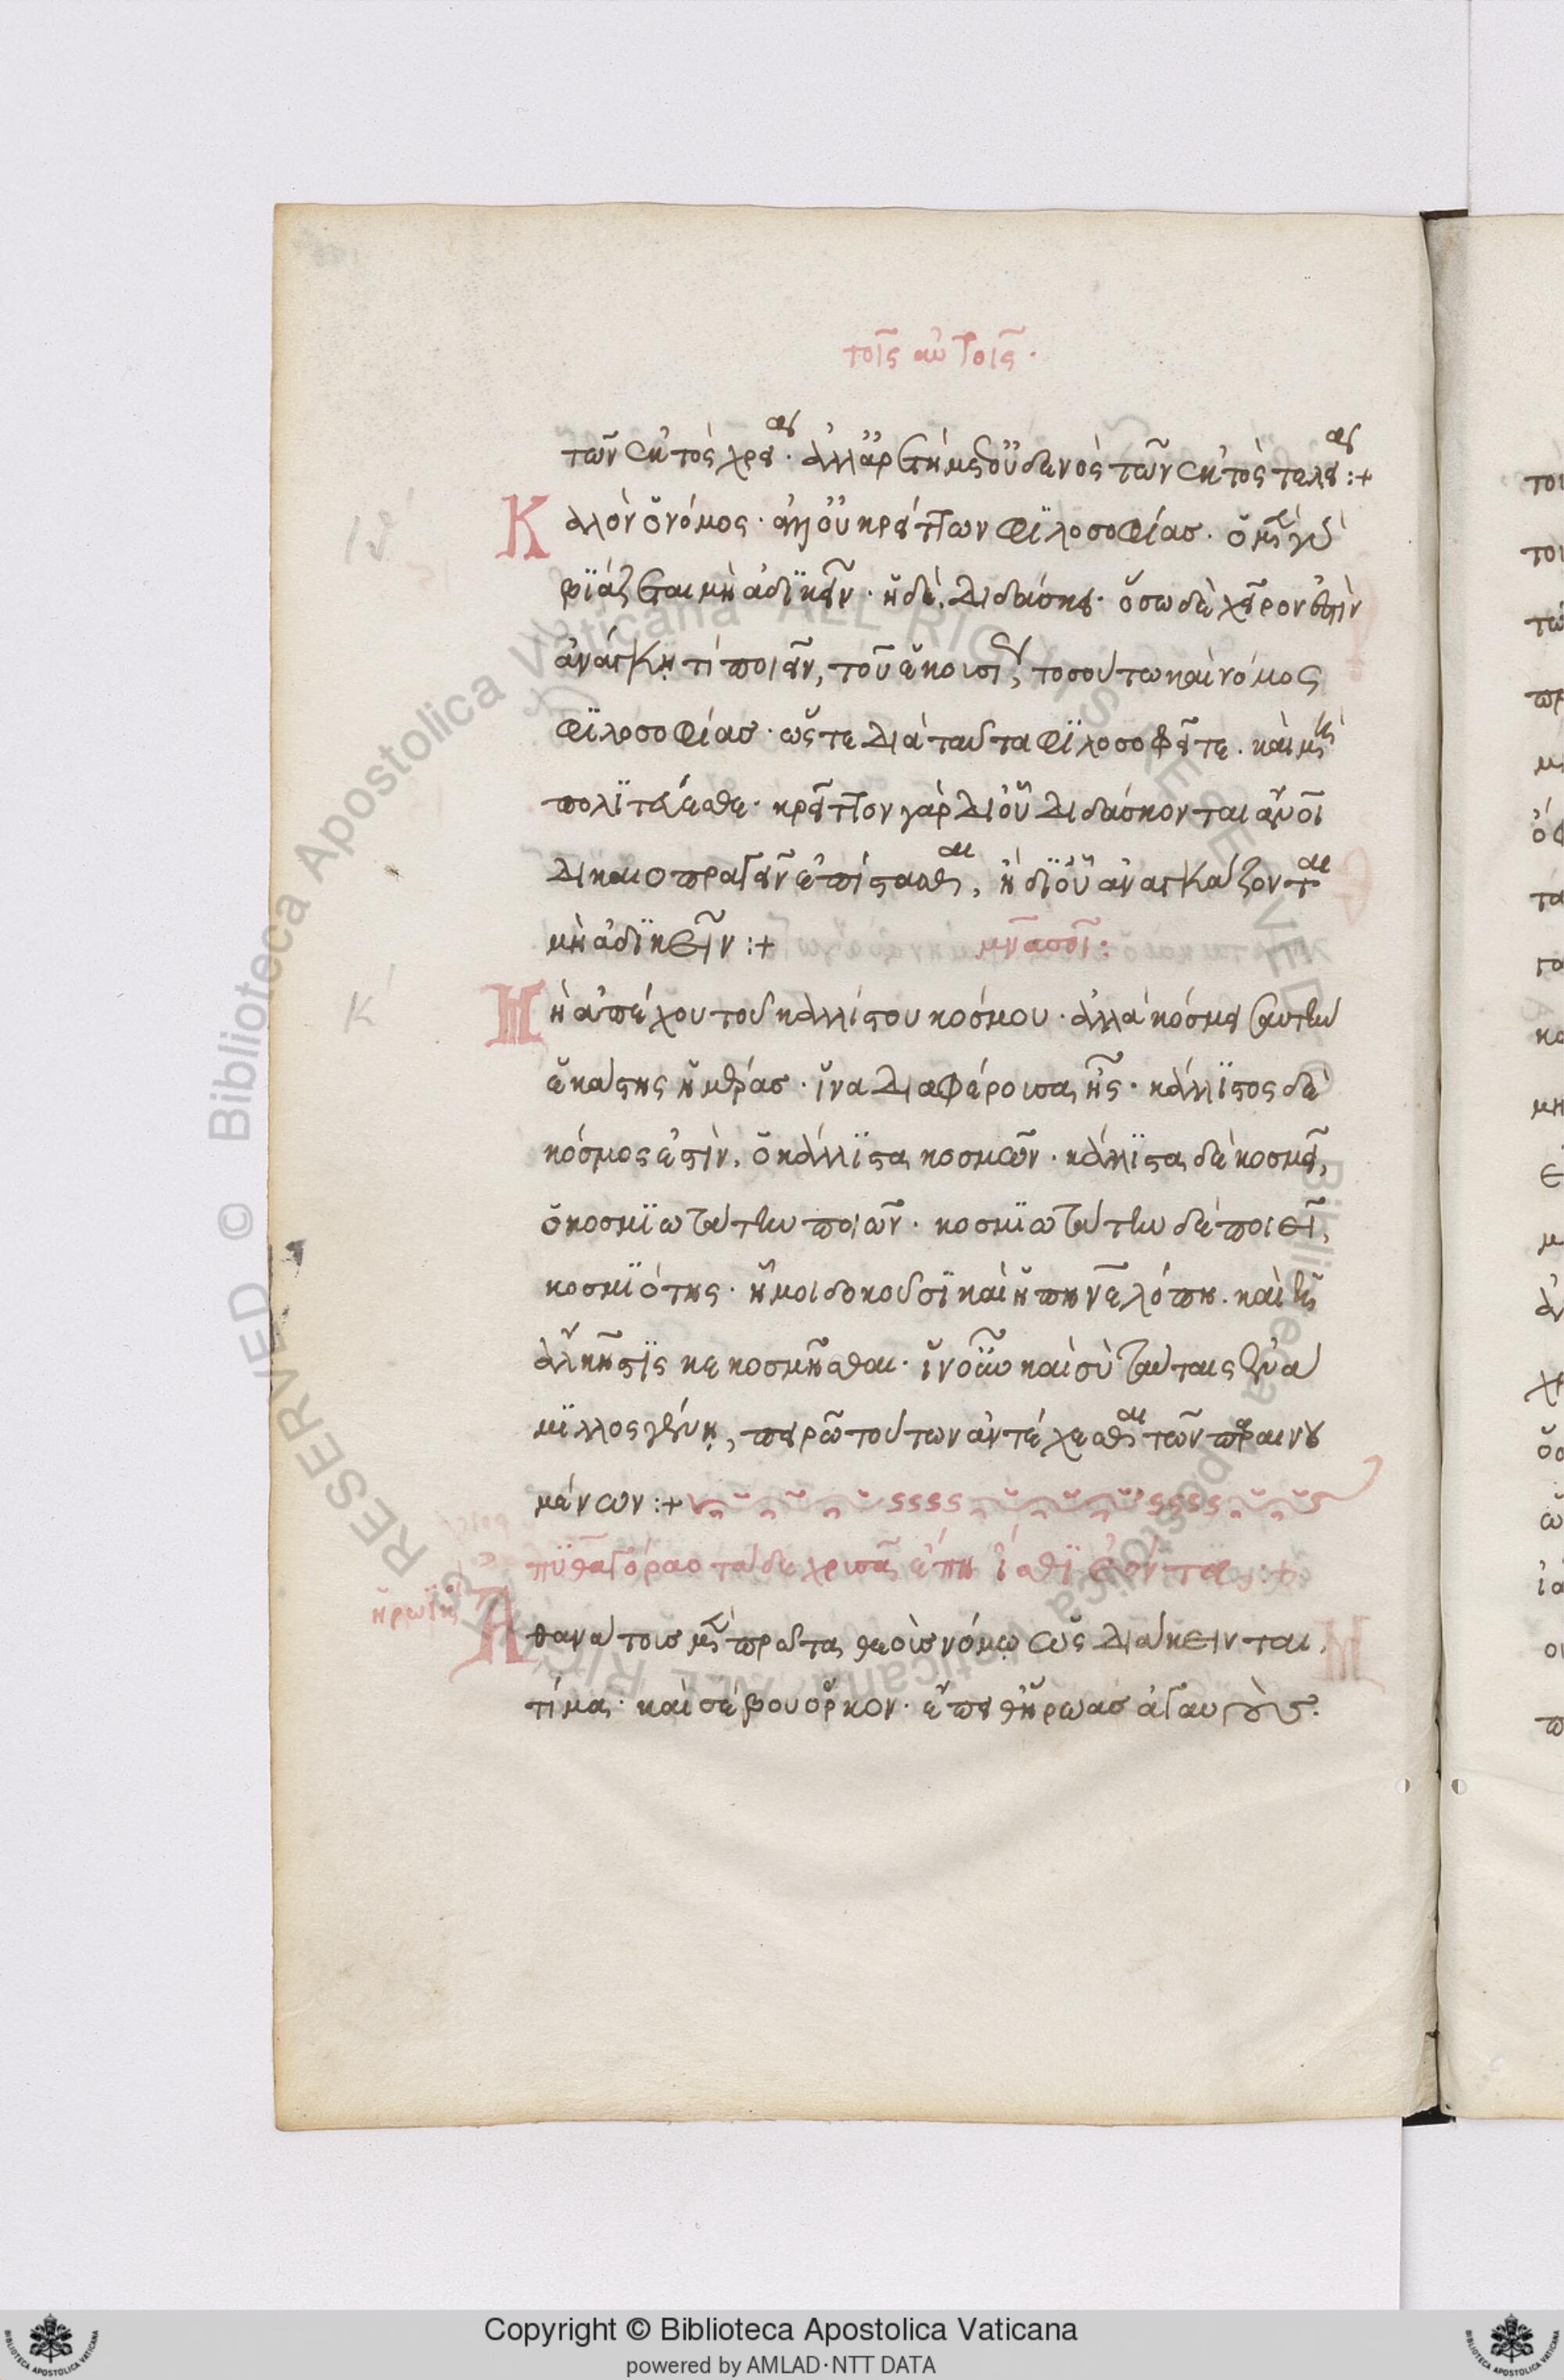 τοῖς αὐτοῖς.
τῶν ἐκτὸς χρείας. ἀλλ' αὐταρκ οὐδενὸς τῶν ἐκτὸς
Καλὸν ὁ νόμος. ἀλλ' οὐ κρεῖττων φιλοσοφίας. ὁ μὲν γὰρ
βιάζεται μὴ ἀδικεῖν. ἡ δὲ διδάσκει. ὅσω δὲ χεῖρον ἐστὶν
ἀνάγκη τί ποιεῖν, τοῦ ἑκουσίως, τοσούτω καὶ νόμος
φιλοσοφίας. ὥστε διὰ ταῦτα φιλοσοφεῖτε. καὶ μὴ
πολιτεύεσθε. κρεῖττον γὰρ δι' οὗ διδάσκονται ἄνοι
δικαιοπραγεῖν ἐπίστασθαι, ἢ δι' οὗ ἀναγκάζονται
μὴ ἀδικεῖν :+ μνασοῖ:
Μὴ ἀπέχου τοῦ καλλίστου κόσμου. ἀλλὰ κόσμει σαυτὴν
ἑκάστης ἡμέρας. ἵνα διαφέρουσα ἦς. κάλλιστος δὲ
κόσμος ἐστὶν, ὁ κάλλιστα κοσμῶν. κάλλιστα δὲ κοσμεῖ,
ὁ κοσμιωτάτην ποιῶν. κοσμιωτάτην δὲ ποιεῖ,
κοσμιότης. ἧ μοι δοκοῦσι καὶ ἡ πηνελόπη. καὶ ἡ
ἄλκηστις κεκοσμῆσθαι. ἵν' οὖν καὶ σὺ ταύταις ἐνά
μιλλος γένη, πειρῶ τούτων ἀντέχεσθαι τῶν παραινου
μένων :+
πυθαγόρας τάδε χρυσᾶ ἔπη ἴσθι
ἡρωϊκ
Ἀθανάτοισ μὲν πρῶτα θεοῖσ νόμω ὡς διάκεινται,
τίμα. καὶ σέβου ὅρκον. ἔπειθ' ἥρωασ ἀγαυούς.
Copyright © Biblioteca Apostolica Vaticana
powered by AMLAD·NTT DATA